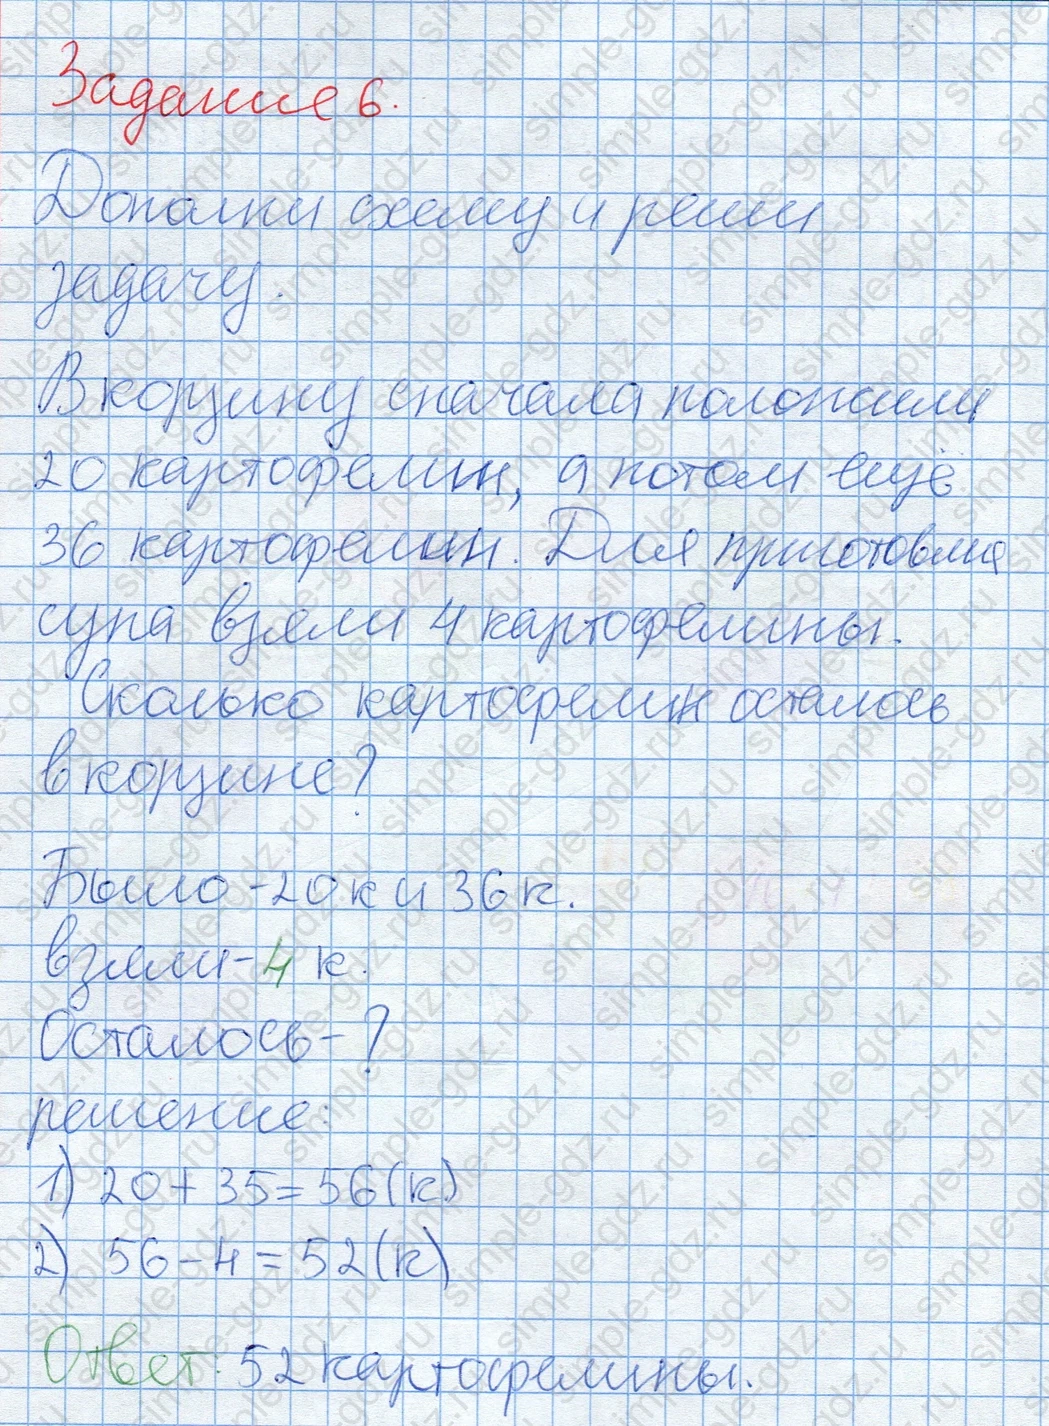 Задание 6.
Дополни схему и реши
задачу.
В корзину сначала положили
20 картофелин, а потом ещё
36 картофелин. Для приготовла
супа взяли 4 картофелины.
Сколько картофелин осталось
в корзине?
Было - 20 к и 36 к.
взяли - 4 к.
Осталось - ?
решение:
1) 20 + 35 = 56 (к)
2) 56 - 4 = 52 (к)
Ответ: 52 картофелины.
simple-gdz.ru